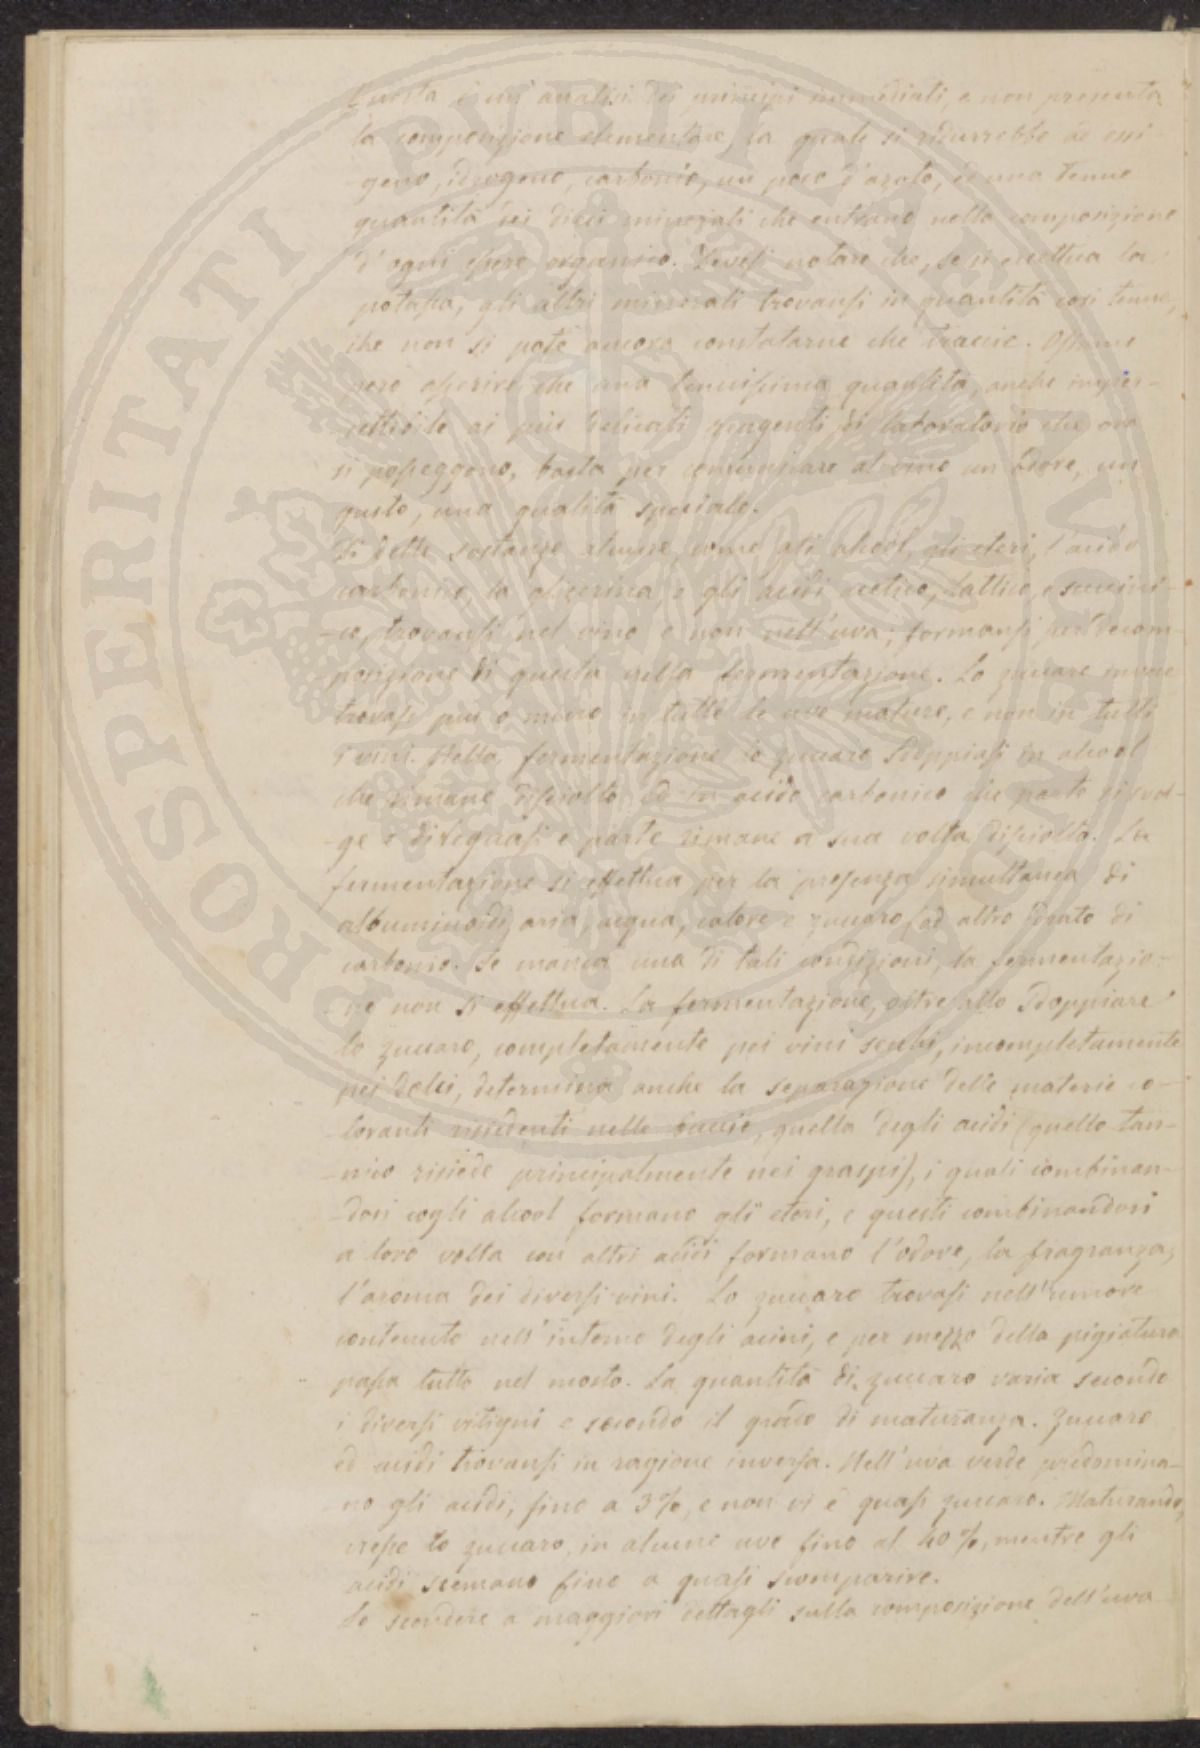 Questa è un' analisi dei principi immediati, e non presenta
la composizione elementare, la quale si ridurrebbe ad ossi-
-geno, idrogeno, carbonio, un poco d'azoto, ed una tenue
quantità dei dieci minerali che entrano nella composizione
d' ogni essere organico. Devesi notare che, se si eccettua la
potassa, gli altri minerali trovansi in quantità così tenue,
che non si potè ancora constatarne che traccie. Osiamo
però asserire che una tenuissima quantità, anche imper-
-cettibile ai più delicati reagenti di laboratorio che ora
si posseggono, basta per comunicare al vino un odore, un
gusto, una qualità speciale.
Di dette sostanze alcune, come gli alcool, gli eteri, l'acido
carbonico, la glicerina, e gli acidi acetico, lattico, e succini-
-co, trovansi nel vino e non nell'uva; formansi per decom-
posizione di questa nella fermentazione. Lo zuccaro invece
trovasi più o meno in tutte le uve mature, e non in tutti
i vini. Nella fermentazione lo zuccaro sdoppiasi in alcool
che rimane disciolto ed in acido carbonico che parte si svol-
-ge e dileguasi e parte rimane a sua volta disciolto. La
fermentazione si effettua per la presenza simultanea di
albuminoidi, aria, acqua, calore e zuccaro, od altro idrato di
carbonio. Se manca una di tali condizioni, la fermentazio-
-ne non si effettua. La fermentazione, oltre allo sdoppiare
lo zuccaro, completamente pei vini secchi, incompletamente
pei dolci, determina anche la separazione delle materie co-
-loranti residenti nelle buccie, quella degli acidi (quello tan-
-nico risiede principalmente nei graspi), i quali combinan-
-dosi cogli alcool formano gli eteri, e questi combinandosi
a loro volta con altri acidi formano l'odore, la fragranza,
l'aroma dei diversi vini. Lo zuccaro trovasi nell'umore
contenuto nell' interno degli acini, e per mezzo della pigiatura
passa tutto nel mosto. La quantità di zuccaro varia secondo
i diversi vitigni e secondo il grado di maturanza. Zuccaro
ed acidi trovansi in ragione inversa. Nell' uva verde predomina-
no gli acidi, fino a 3%, e non vi è quasi zuccaro. Maturando,
cresce lo zuccaro, in alcune uve fino al 40%, mentre gli
acidi scemano fino a quasi scomparire.
Lo scendere a maggiori dettagli sulla composizione dell'uva
PROSPERITATI PVBLICAE AVGENDAE